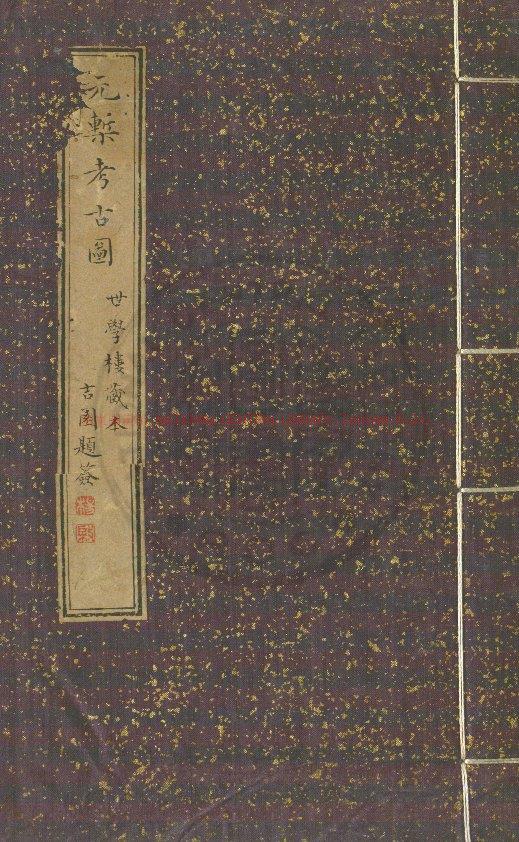 元槧考古圖
世學樓藏本
古園題簽